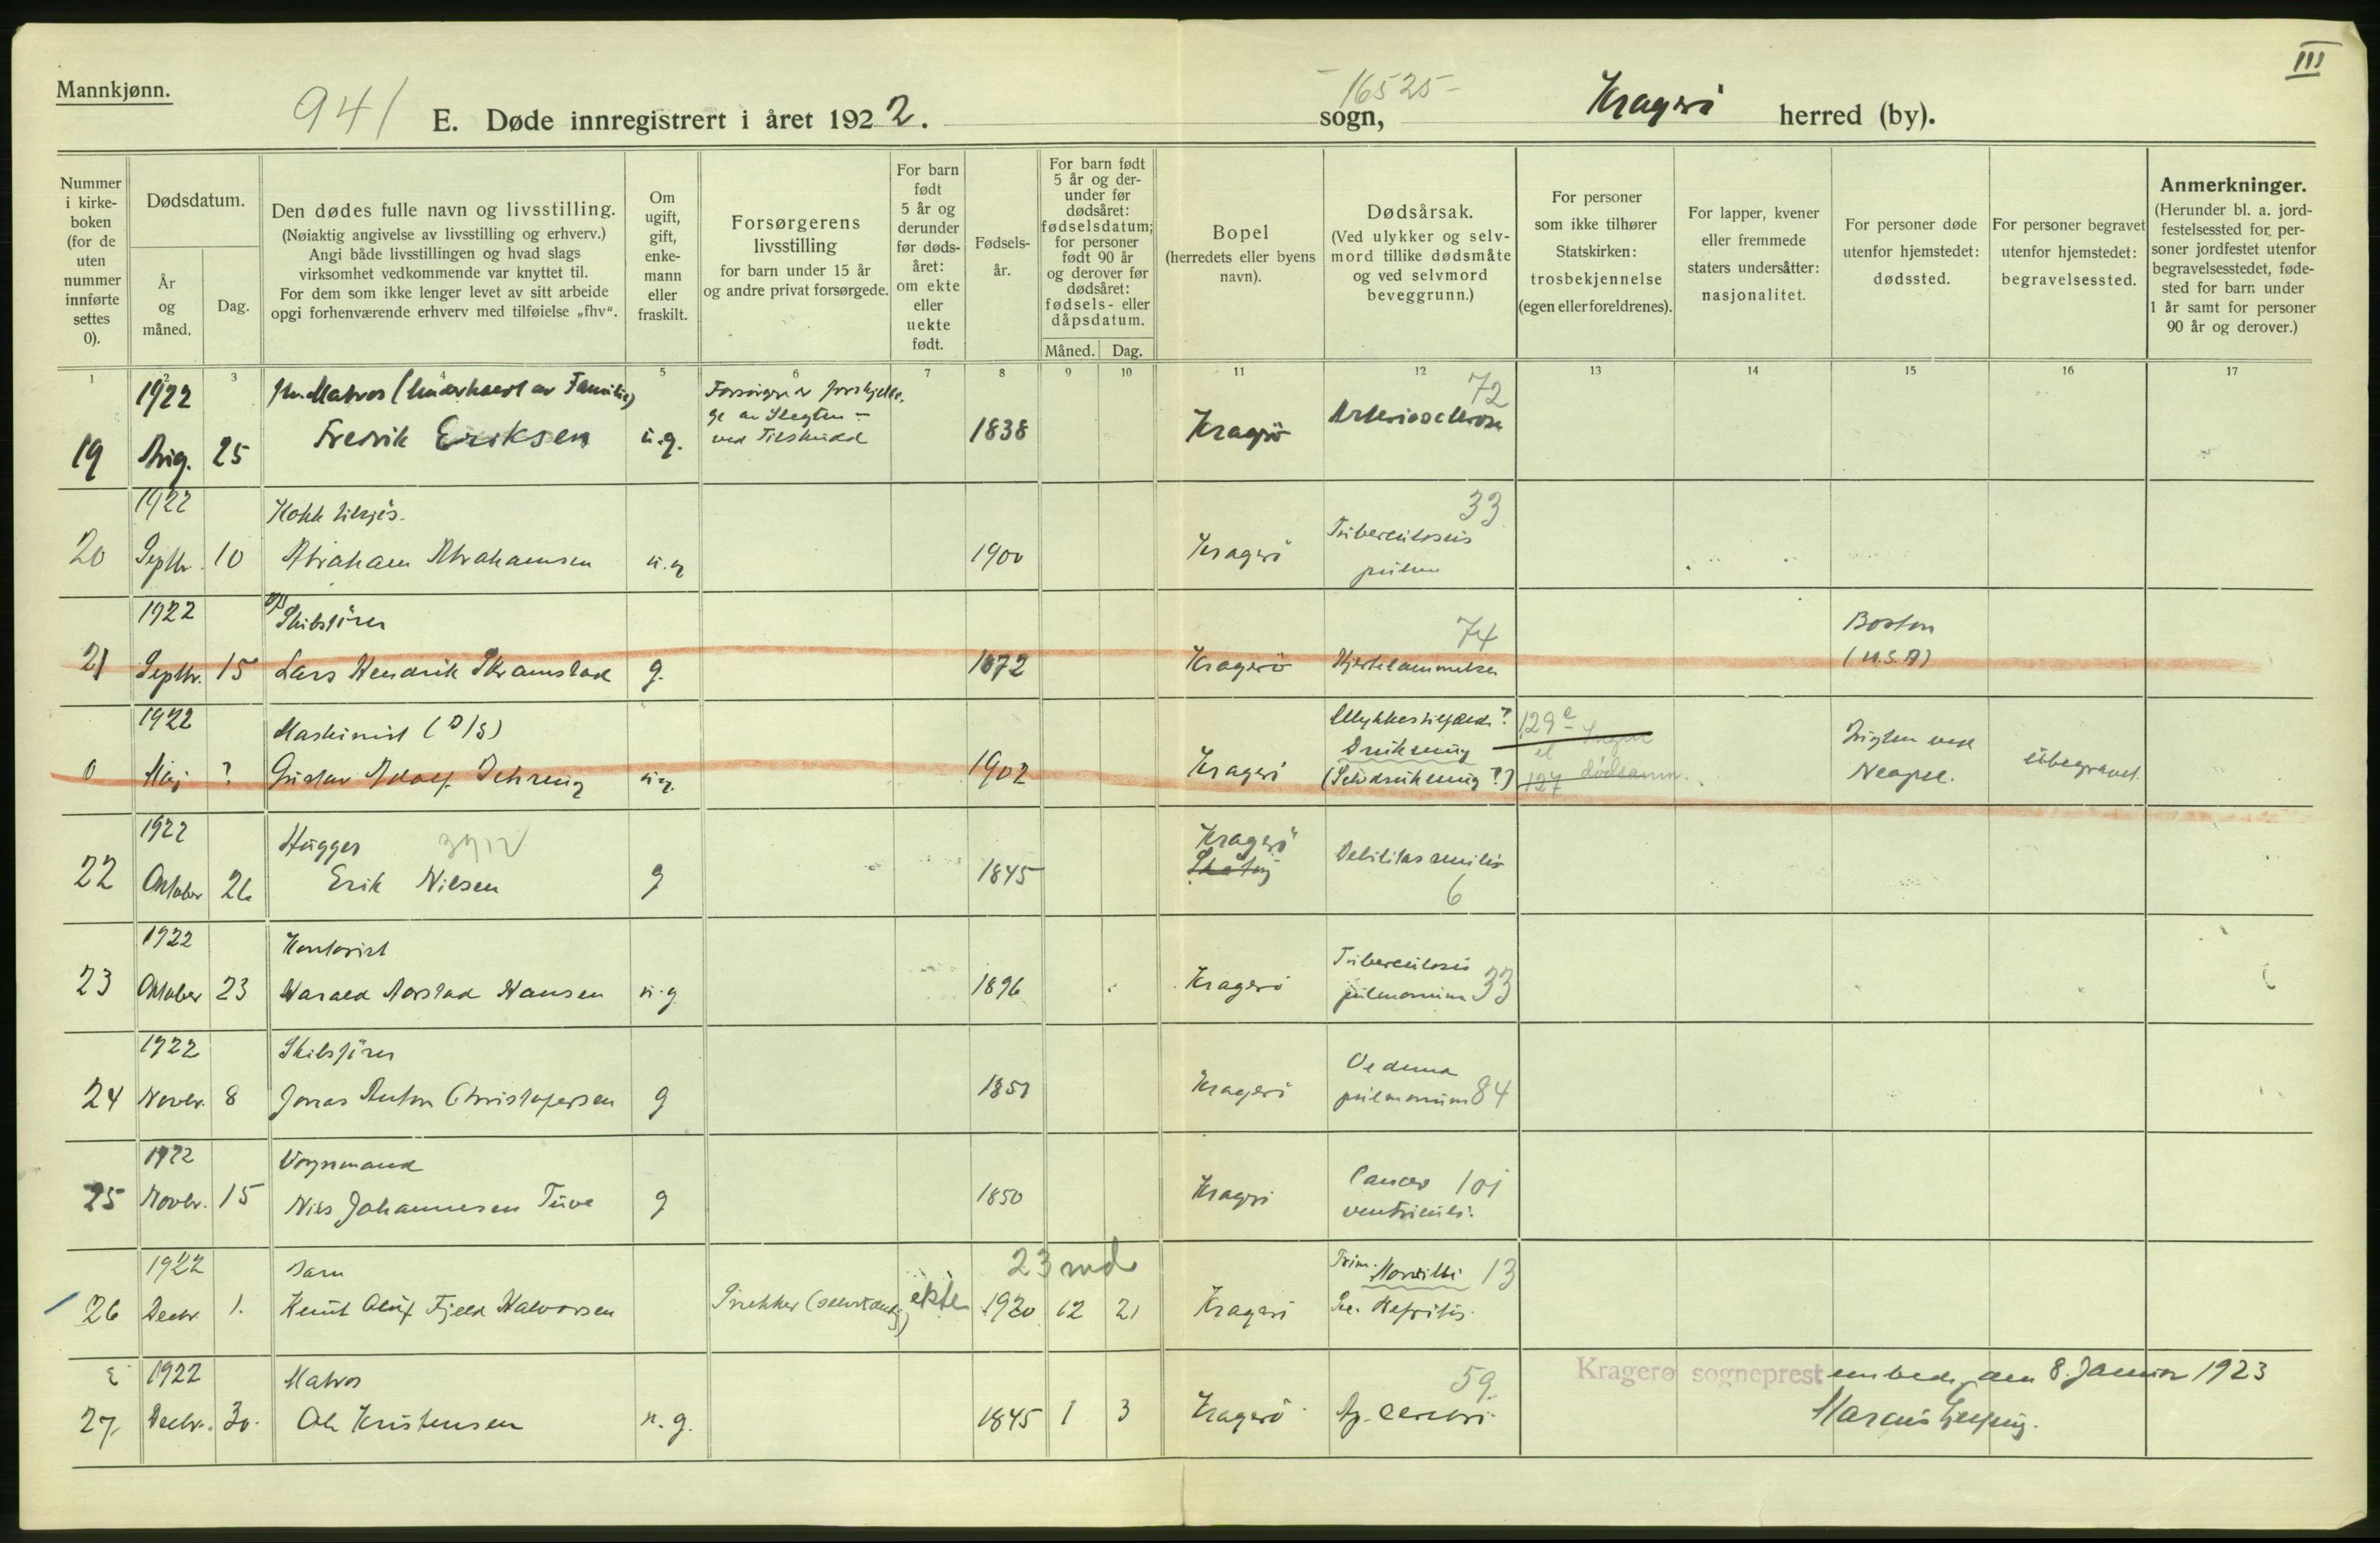 III
Mannkjønn.
941
E. Døde innregistrert i året 1922.
16525
sogn,
Kragerø herred (by).
Nummer i kirke-boken (for de uten nummer innførte settes 0).
Dødsdatum.
År og måned.
Dag.
Den dødes fulle navn og livsstilling.
(Nøiaktig angivelse av livsstilling og erhverv.)
Angi både livsstillingen og hvad slags
virksomhet vedkommende var knyttet til.
For dem som ikke lenger levet av sitt arbeide
opgi forhenværende erhverv med tilføielse „fhv“.
Om ugift, gift, enke-mann eller fraskilt.
Forsørgerens
livsstilling
for barn under 15 år
og andre privat forsørgede.
For barn født 5 år og derunder før døds-året: om ekte eller uekte født.
Fødsels-år.
For barn født 5 år og der-under før dødsåret: fødselsdatum; for personer født 90 år og derover før dødsåret: fødsels- eller dåpsdatum.
Måned. Dag.
Bopel
(herredets eller byens
navn).
Dødsårsak.
(Ved ulykker og selv-
mord tillike dødsmåte
og ved selvmord
beveggrunn.)
For personer
som ikke tilhører
Statskirken:
trosbekjennelse
(egen eller foreldrenes).
For lapper, kvener
eller fremmede
staters undersåtter:
nasjonalitet.
For personer døde
utenfor hjemstedet:
dødssted.
For personer begravet
utenfor hjemstedet:
begravelsessted.
Anmerkninger.
(Herunder bl. a. jord-
festelsessted for per-
soner jordfestet utenfor
begravelsesstedet, føde-
sted for barn under
1 år samt for personer
90 år og derover.)
1 2 3 4 5 6 7 8 9 10 11 12 13 14 15 16 17
1922 72
19 Aug. 25 Fredrik Eriksen u.g. 1838 Kragerø Arteriosclerose
1922 Kokk tilsjøs 33
20 Septbr. 10 Abraham Abrahamsen u.g 1900 Kragerø Tuberculosis pulm
1922 Skibsfører 74 Boston
21 Septbr. 15 Lars Hendrik Skramstad g. 1872 Kragerø Hjertelammelse (U.S.A)
1922 Maskinist (D/S) Ulykkestilfælde? 129
Drukning el
0 Mai ? Gustav Adolf u.g. 1902 Kragerø (Selvdrukning?) 127 dødsanm. Neapel. ubegravet.
1922 Hugger Kragerø
22 Oktober 26 Erik Nilsen g 1845 Debilitas senilis
6
1922 Kontorist Tuberculosis
23 Oktober 23 Harald Aarstad Hansen u.g 1896 Kragerø pulmonum 33
1922 Skibsfører Oedema
24 Novbr. 8 Jonas Anton Christofersen g Kragerø pulmonum 84
1922 Cancer 101
25 Novbr. 15 Nils Johannesen Tuve g 1850 Kragerø ventriculi.
1922 Barn 23 md Prim. Morbilli 13
26 Decbr. 1. Knut Oluf Fjeld Halvorsen Snekker (selvstændig) ekte 1920 12 21 Kragerø Sec. Nefritis.
1922 Matros 59
27 Decbr. 30. Ole Kristensen u.g. 1845 1 3 Kragerø Ap. cerebri
Kragerø sogneprestembede, den 8. Januar 1923